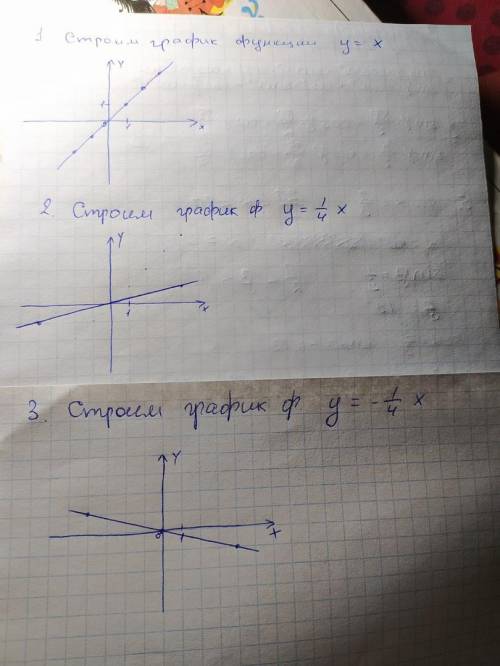 1 Строим график функции y = x
Y
1
1
x
2. Строим график ф y = 1/4 x
Y
1
x
3. Строим график ф y = - 1/4 x
Y
0
1
X